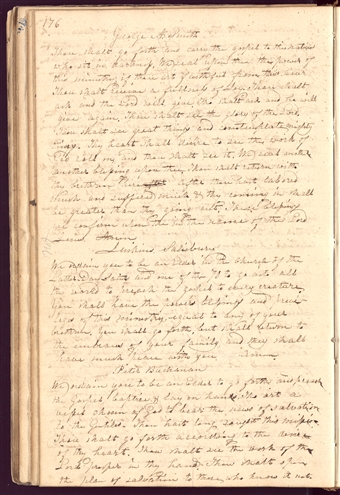 176
George A. Smith
Thou shalt go forth and carry the gospel to the nations
who sit in darkness. We seal upon thee the power of
this ministry; thou art
Thou shalt receive a fullness of
ask and the Lord will give, thou shalt ask and he will
give again. Thou shalt see the glory of the Lord,
Thou shalt see great things and contemplate mighty
things. Thy heart shall desire to see this work
roll on, and thou shalt see it. We seal another
blessing upon thee, Thou shalt return with
thy brethren after thou hast labored
much and suffered much, & thy coming in shall
be greater than thy going out. These blessings
we confirm upon thee in the name of the Lord
Jesus. Amen
Lewiston, Salisbury
We ordain you to be an Elder in the church of the
Latter Day Saints and one of the 70 to go into all
the world to preach the gospel to every creature,
You shall have the power, blessings and privi-
leges of this ministry, equal to any of your
brethren. You shall go forth, but shall return to
the embraces of your family, and they shall
have much peace with you. Amen.
Peter Buchanan
We ordain you to be an Elder to go forth and preach
the Gospel, baptise & lay on hands. Thou art a
vessel chosen of God to bear the news of salvation
to the Gentiles. Thou hast long sought this
Thou shalt go forth according to the desire
of thy heart. Thou shalt see the work of the
Lord prosper in thy hand; Thou shalt open
the plan of salvation to those who know it not.